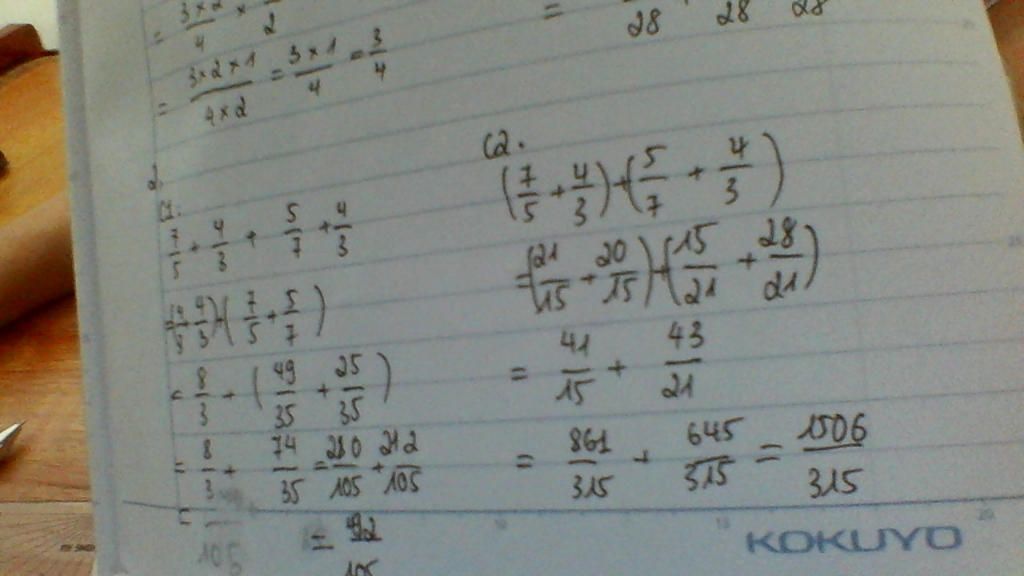 = 3×2/4 × /2
= 3×2×1/4×2 = 3×1/4 = 3/4
= /28 /28 /28
2.
C1.
7/5 + 4/3 + 5/7 + 4/3
= (4/3 + 4/3) + (7/5 + 5/7)
= 8/3 + (49/35 + 25/35)
= 8/3 + 74/35 = 280/105 + 212/105
= 105
= 92/105
C2.
(7/5 + 4/3) + (5/7 + 4/3)
= (21/15 + 20/15) + (15/21 + 28/21)
= 41/15 + 43/21
= 861/315 + 645/315 = 1506/315
KOKUYO